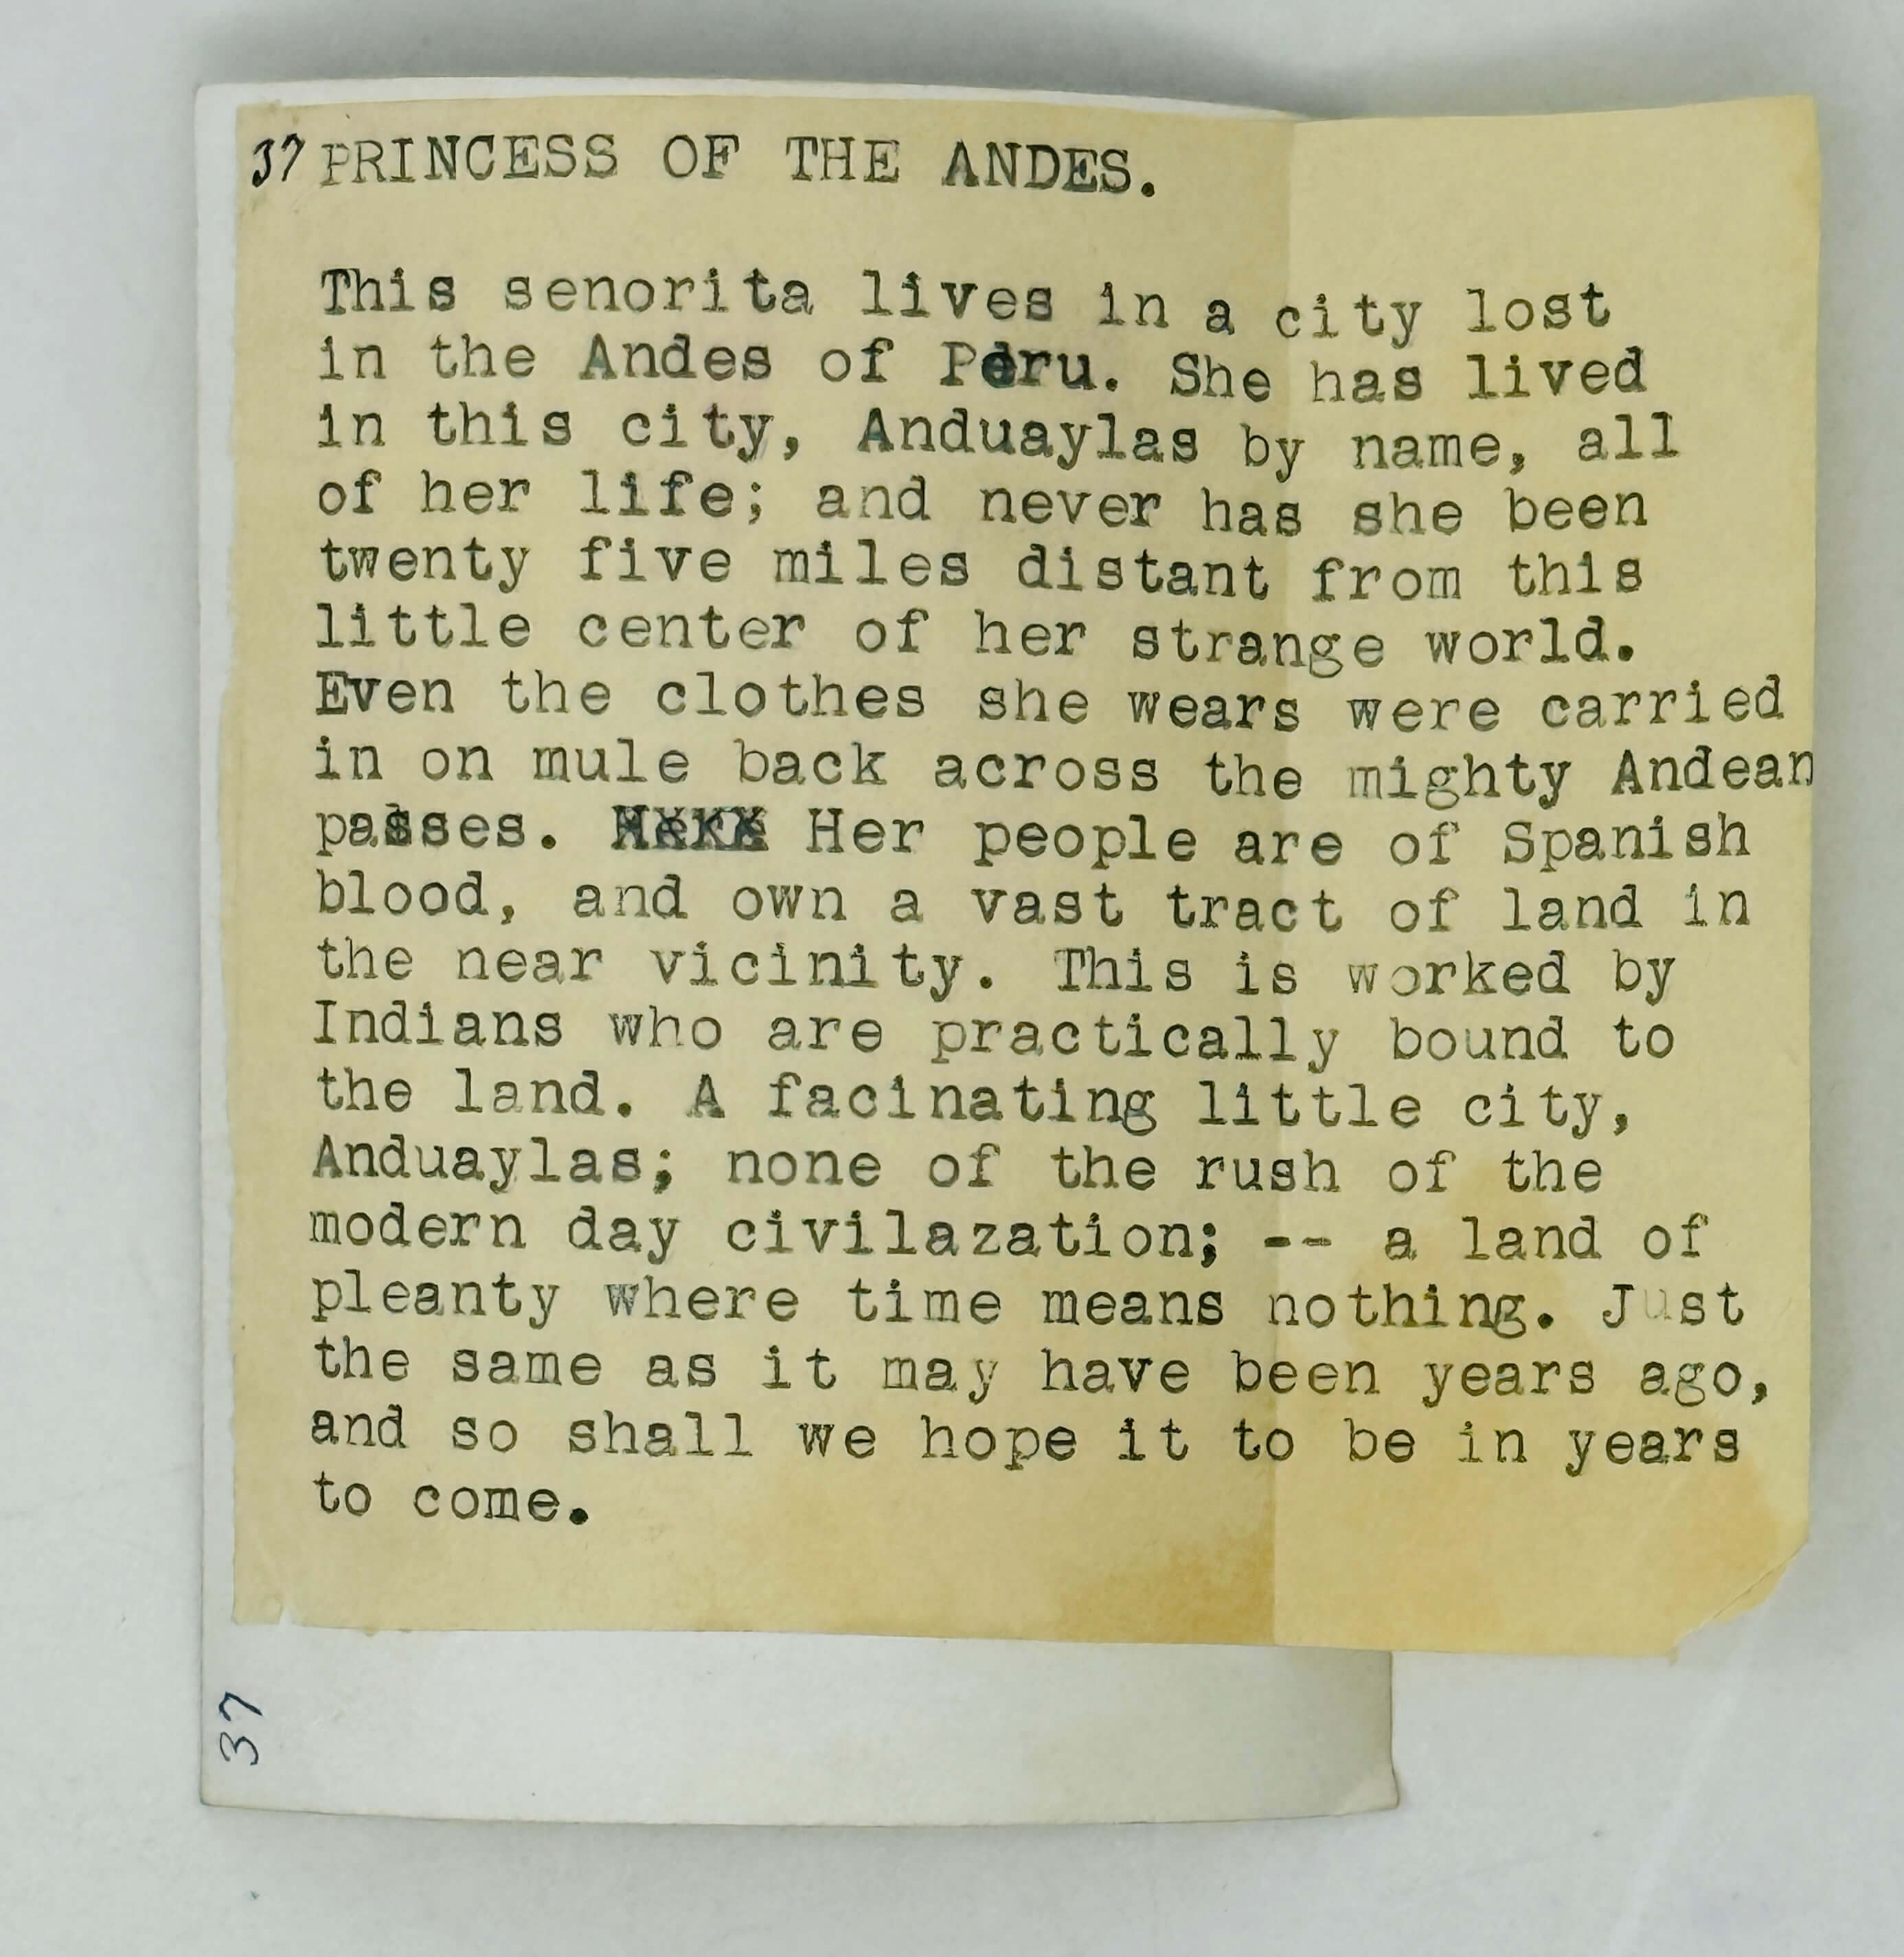 37 PRINCESS OF THE ANDES.
This senorita lives in a city lost
in the Andes of Peru. She has lived
in this city, Anduaylas by name, all
of her life; and never has she been
twenty five miles distant from this
little center of her strange world.
Even the clothes she wears were carried
in on mule back across the mighty Andean
passes. Her people are of Spanish
blood, and own a vast tract of land in
the near vicinity. This is worked by
Indians who are practically bound to
the land. A facinating little city,
Anduaylas; none of the rush of the
modern day civilazation; -- a land of
pleanty where time means nothing. Just
the same as it may have been years ago,
and so shall we hope it to be in years
to come.
37